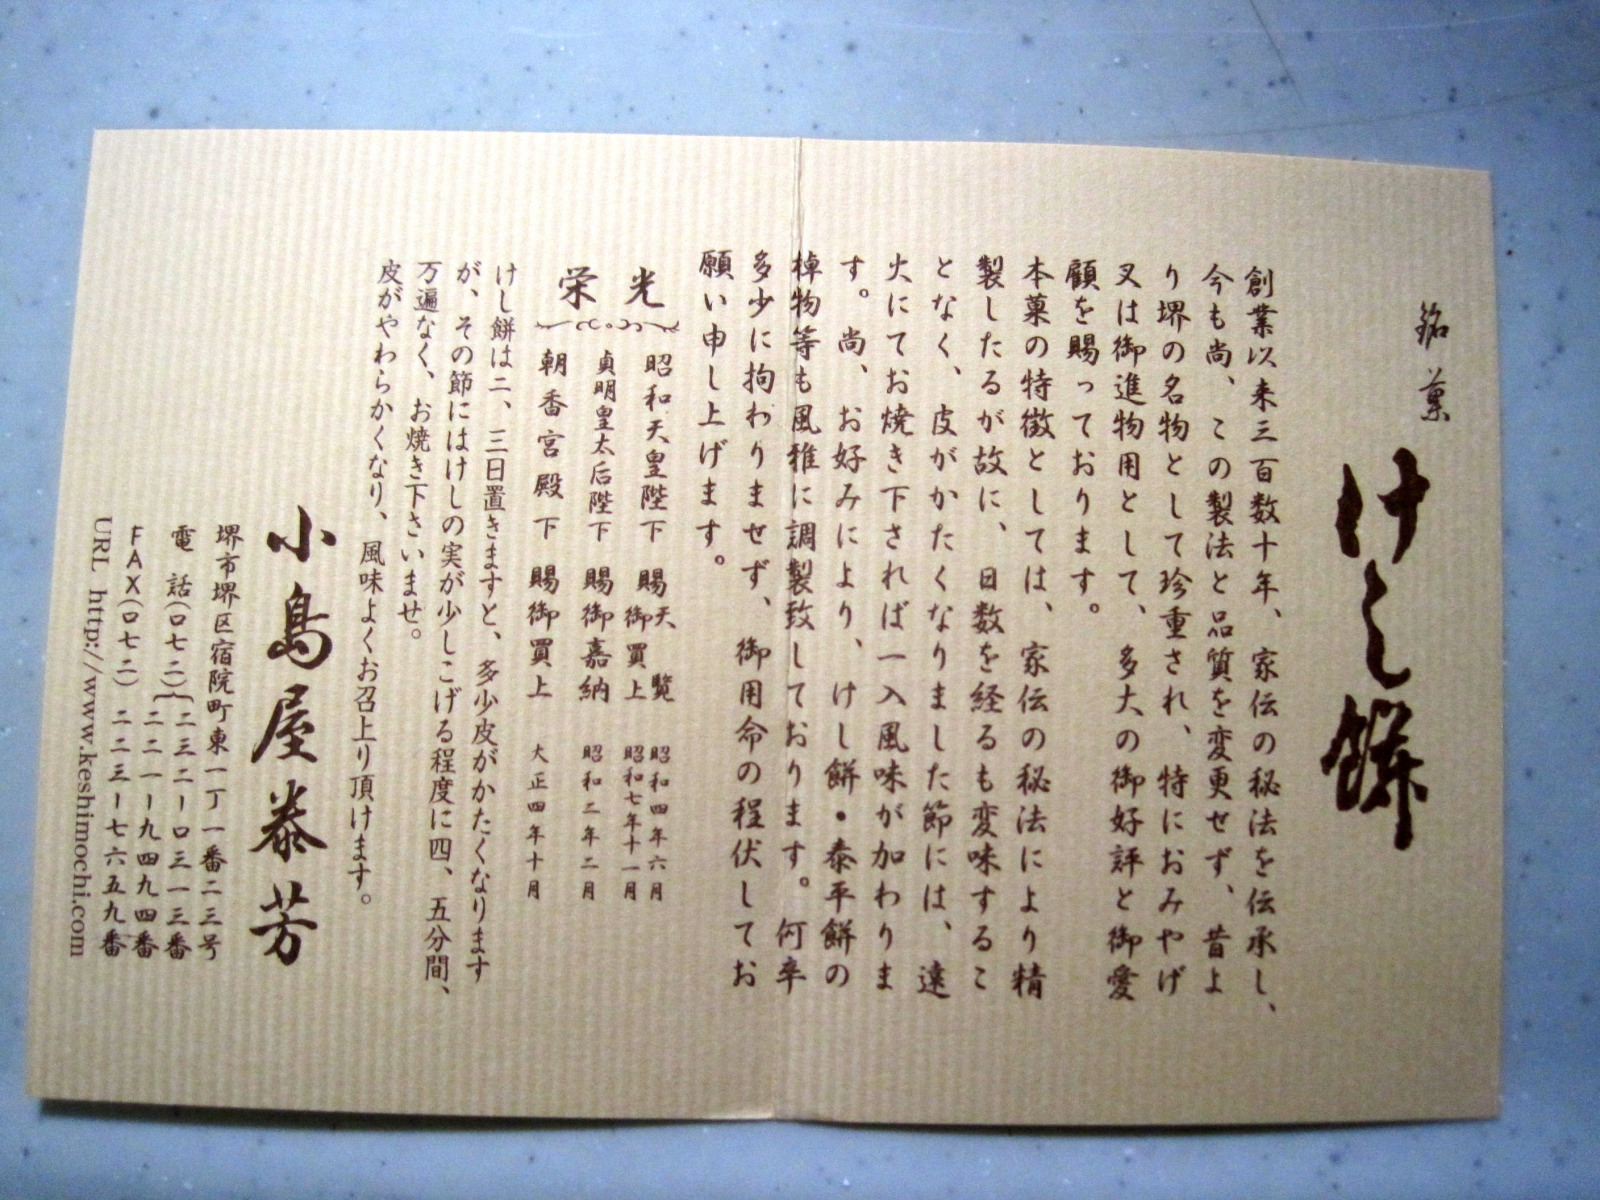 銘菓
けし餅
創業以来三百数十年、家伝の秘法を伝承し、
今も尚、この製法と品質を変更せず、昔よ
り堺の名物として珍重され、特におみやげ
又は御進物用として、多大の御好評と御愛
顧を賜っております。
本菓の特徴としては、家伝の秘法により精
製したるが故に、日数を経るも変味するこ
となく、皮がかたくなりました節には、遠
火にてお焼き下されば一入風味が加わりま
す。尚、お好みにより、けし餅・泰平餅の
棹物等も風雅に調製致しております。何卒
多少に拘わりませず、御用命の程伏してお
願い申し上げます。
光栄
昭和天皇陛下 賜天覧 昭和四年六月
賜御買上 昭和七年十一月
貞明皇太后陛下 賜御嘉納 昭和二年二月
朝香宮殿下 賜御買上 大正四年十月
けし餅は二、三日置きますと、多少皮がかたくなります
が、その節にはけしの実が少しこげる程度に四、五分間、
万遍なく、お焼き下さいませ。
皮がやわらかくなり、風味よくお召上り頂けます。
小島屋泰芳
堺市堺区宿院町東一丁一番二三号
電話(〇七二) 二三二ー〇三一三番
二二一ー九四九四番
FAX(〇七二) 二二三ー七六五九番
URL http://www.keshimochi.com